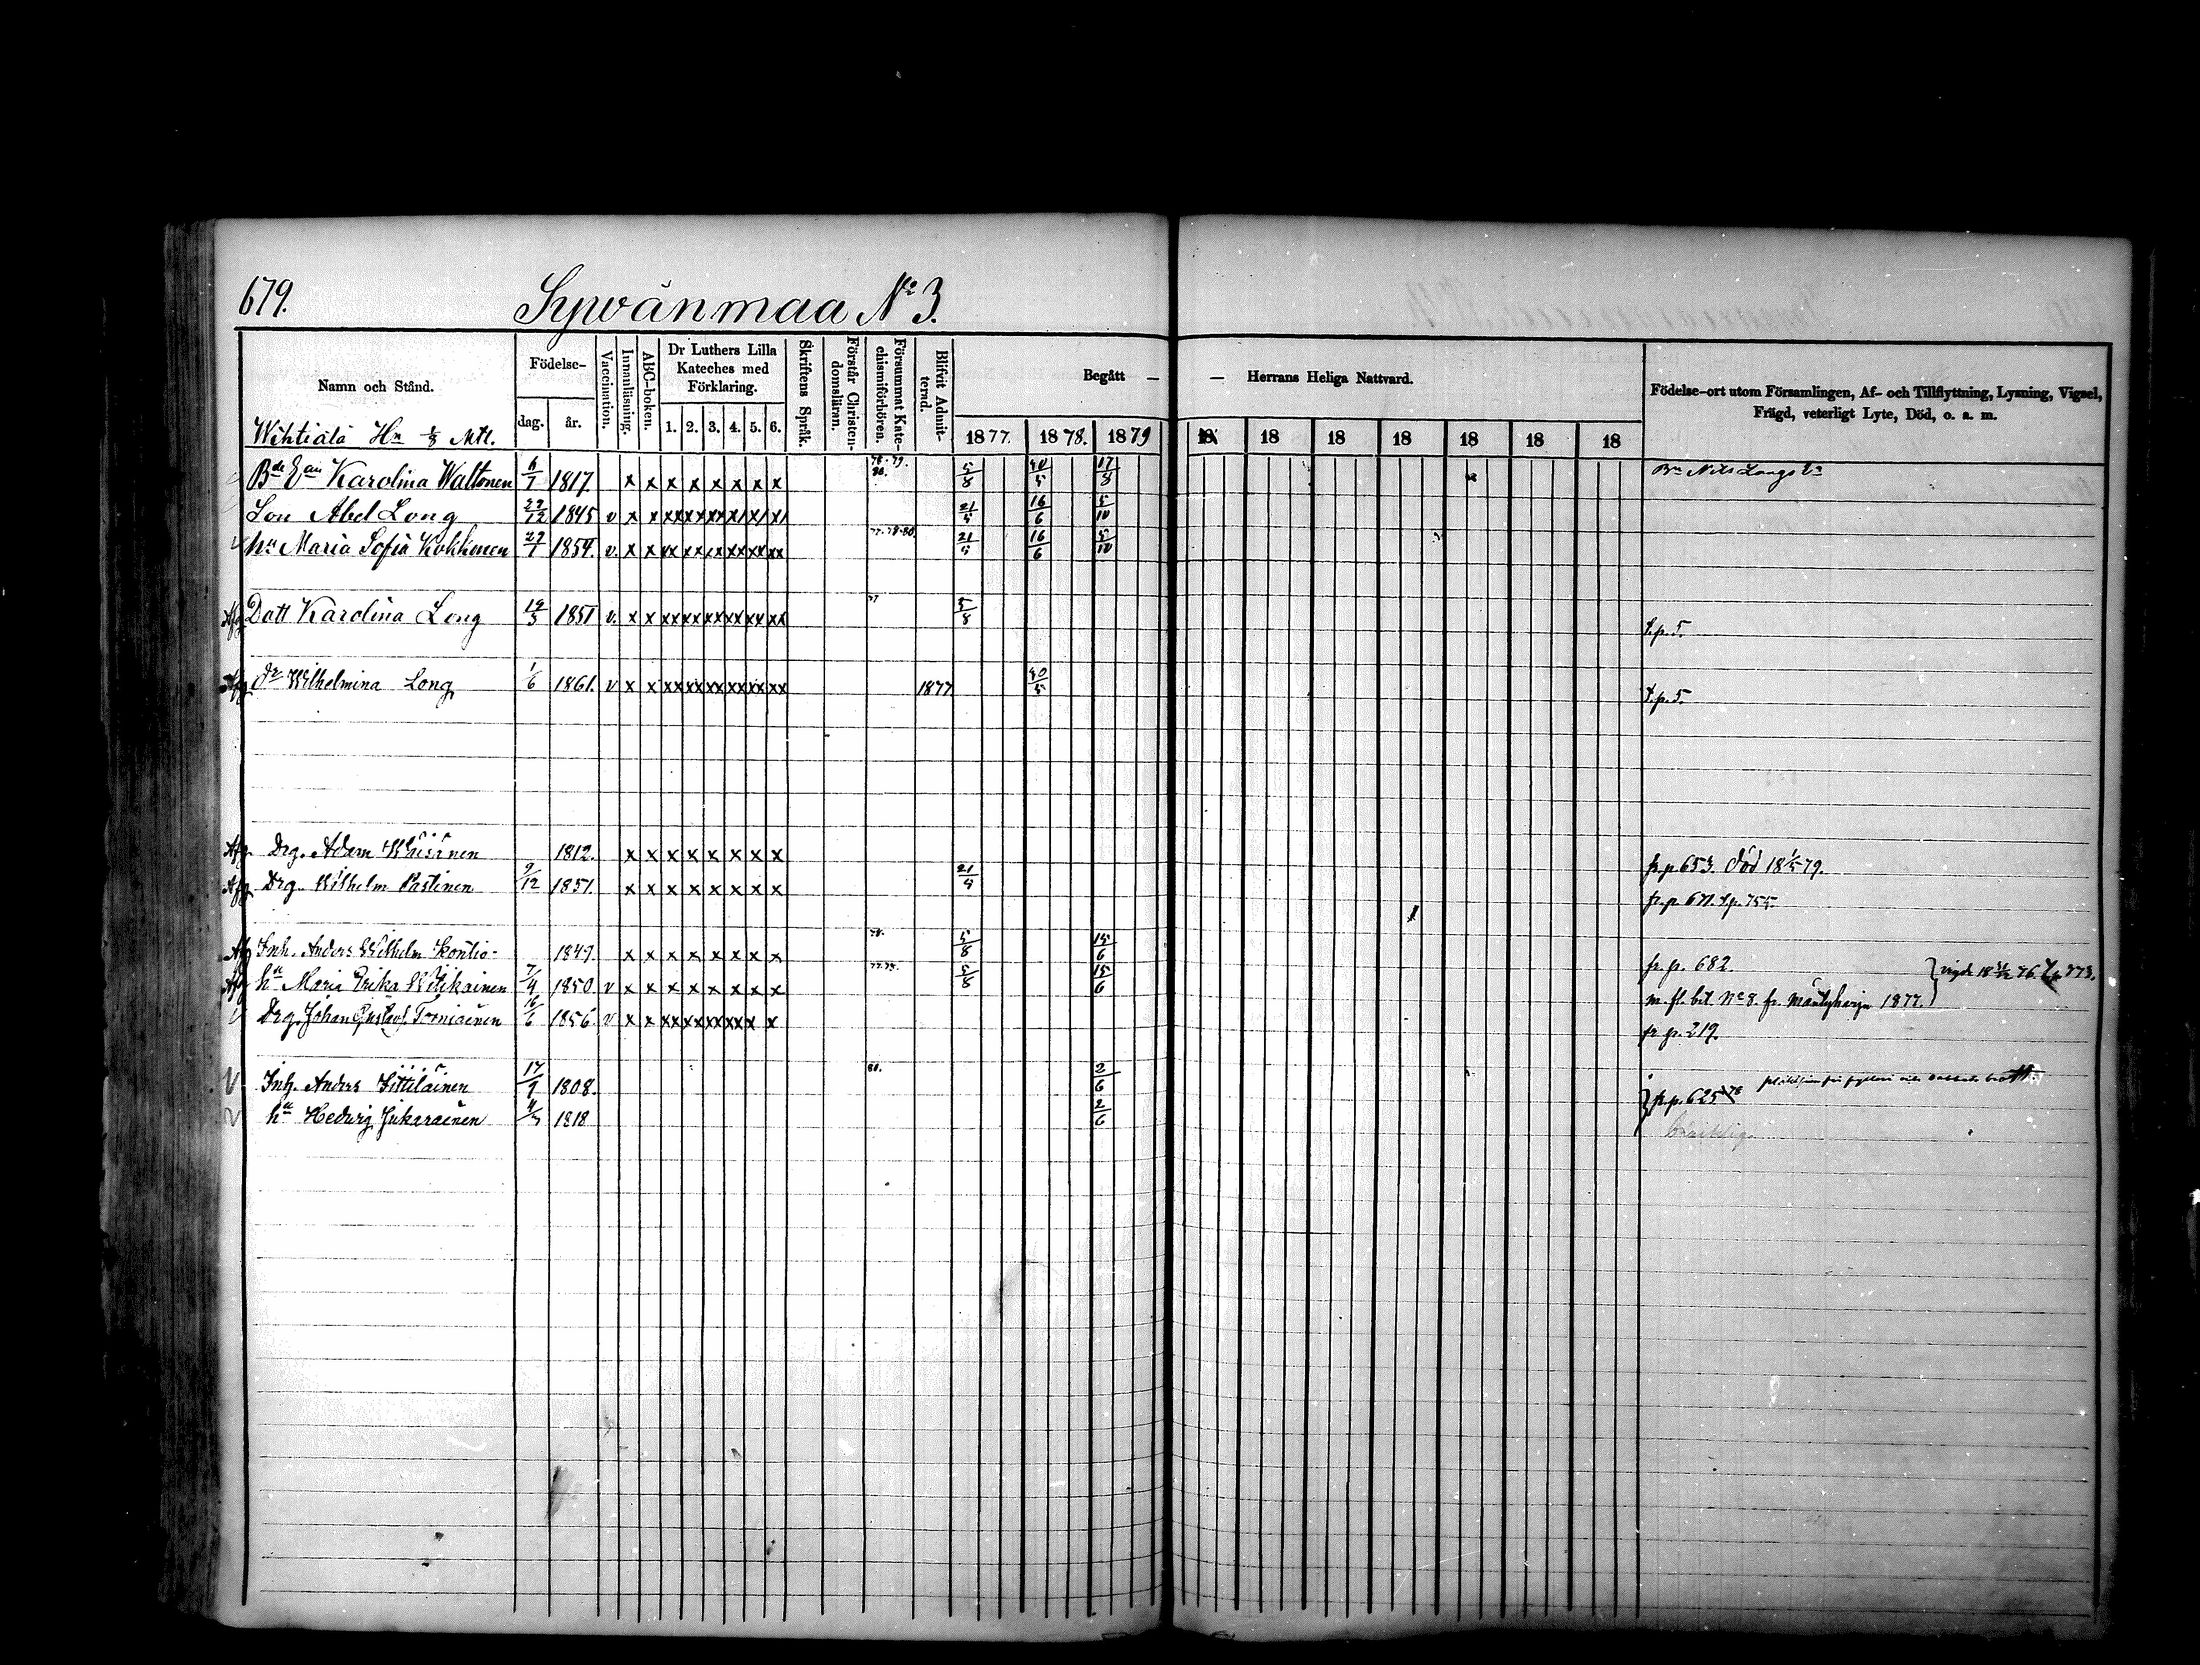 679. Sywänmaa No 3.
Namn och Stånd. Födelse- dag. år. Vaccination. Innanläsning. ABC-boken. Dr Luthers Lilla Kateches med Förklaring. 1. 2. 3. 4. 5. 6. Skriftens Språk. Förstår Christendomsläran. Försummat Katechismiförhören. Blifvit Admitterad. Begått — — Herrans Heliga Nattvard. Födelse-ort utom Församlingen, Af- och Tillflyttning, Lysning, Vigsel, Frägd, veterligt Lyte, Död, o. s. m.
Wihtiälä Hn 1/3 Mtl. 1877. 1878. 1879 18 18 18 18 18 18 18
Bde Ean Karolina Waltonen 6/7 1817. x x x x x x x x 78. 79. 80. 5/8 30/5 17/8 Bn Nils Longs
Son Abel Long 22/12 1845 v x x xx xx xx x/ x/ x/ 21/5 16/6 5/10
hu Maria Sofia Kokkonen 29/1 1854. v. x x xx xx xx xx xx xx 77. 78. 80. 21/5 16/6 5/10
Afg Dott Karolina Long 19/5 1851 v. x x xx xx xx xx xx xx 77 5/8 t.p. 5.
Afg dr Wilhelmina Long 1/6 1861. v x x xx xx xx xx xx xx 1877 30/5 t.p. 5.
Afg. Drg. Adam 1812. x x x x x x x x fr.p. 653. död 18 1/5 79.
Afg Drg. Wilhelm Pastinen 9/12 1851. x x x x x x x x 21/5 fr.p. 671. t.p. 755.
Afg Inh. Anders Wilhelm Kontio 1849. x x x x x x x x 78. 5/8 15/6 fr. p. 682.
Afg hu Maria Erika Witikainen 7/4 1850 v x x x x x x x x 77. 78. 5/8 15/6 m. fl. bet. No 8. fr. Mäntyharju 1877. } vigde 18 76 t.p. 773.
Drg. Johan Gustaf Torniainen 16/6 1856. v x x xx xx xx xx x x fr p. 219.
V Inh. Anders Sittiläinen 17/9 1808. 80. 2/6 } fr.p. 625
V hu Hedwig Jukarainen 4/5 1818 2/6